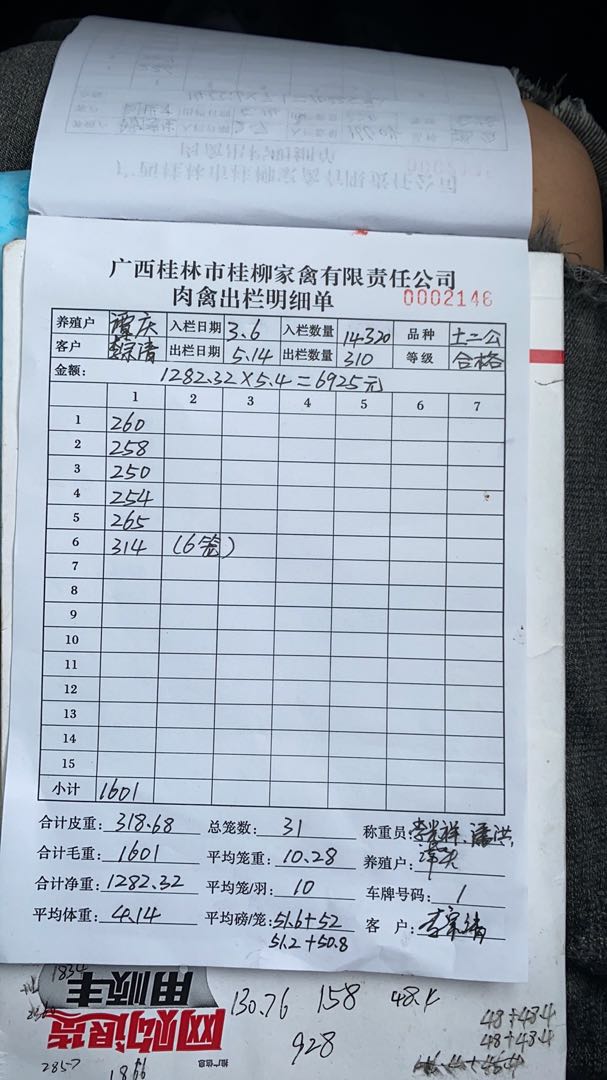 广西桂林市桂柳家禽有限责任公司
肉禽出栏明细单 0002146
养殖户 谭庆 入栏日期 3.6 入栏数量 14320 品种 土二公
客户 出栏日期 5.14 出栏数量 310 等级 合格
金额: 1282.32×5.4=6925元
1 2 3 4 5 6 7
1 260
2 258
3 250
4 254
5 265
6 314 (6笼)
7
8
9
10
11
12
13
14
15
小计 1601
合计皮重: 318.68 总笼数: 31 称重员:
合计毛重: 1601 平均笼重: 10.28 养殖户:
合计净重: 1282.32 平均笼/羽: 10 车牌号码: 1
平均体重: 4.14 平均磅/笼: 51.6+52 客 户:
51.2+50.8
1834
用顺丰
网购退货
推广信息
130.76 158 48.4
928
48+48.4
48+43.4
2857
1866